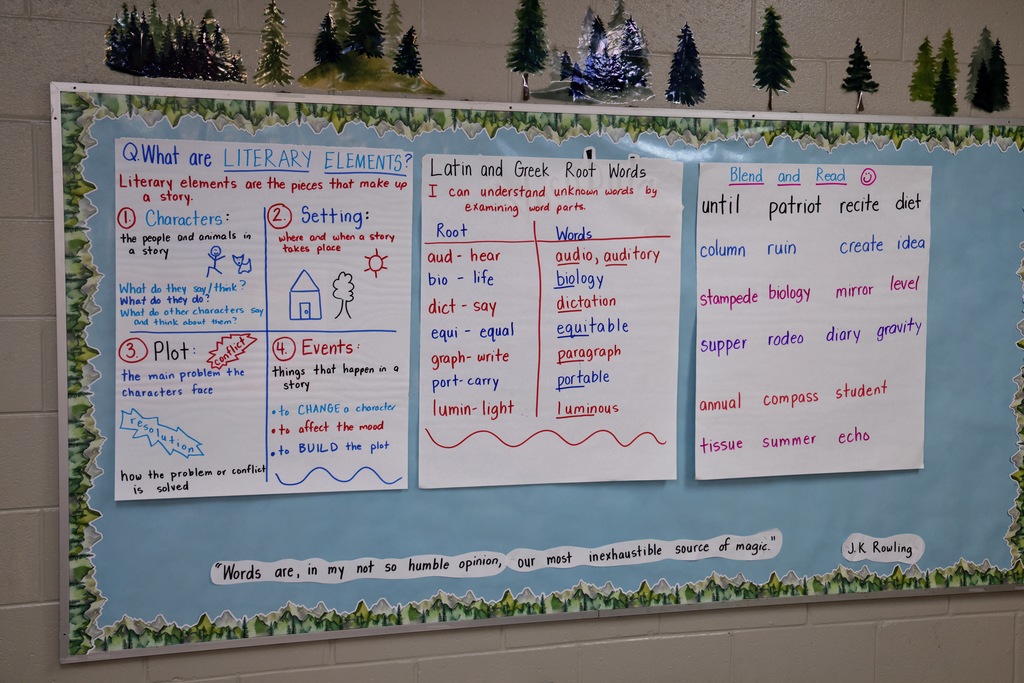 Q. What are LITERARY ELEMENTS?
Literary elements are the pieces that make up
a story.
1. Characters:
the people and animals in
a story
What do they say/think?
What do they do?
What do other characters say
and think about them?
2. Setting:
where and when a story
takes place
3. Plot:
conflict
The main problem the
characters face
resolution
how the problem or conflict
is solved
4. Events:
things that happen in a
story
• to CHANGE a character
• to affect the mood
• to BUILD the plot
Latin and Greek Root Words
I can understand unknown words by
examining word parts.
Root Words
aud - hear audio, auditory
bio - life biology
dict - say dictation
equi - equal equitable
graph - write paragraph
port - carry portable
lumin - light luminous
Blend and Read
until patriot recite diet
column ruin create idea
stampede biology mirror level
supper rodeo diary gravity
annual compass student
tissue summer echo
"Words are, in my not so humble opinion, our most inexhaustible source of magic."
J.K Rowling